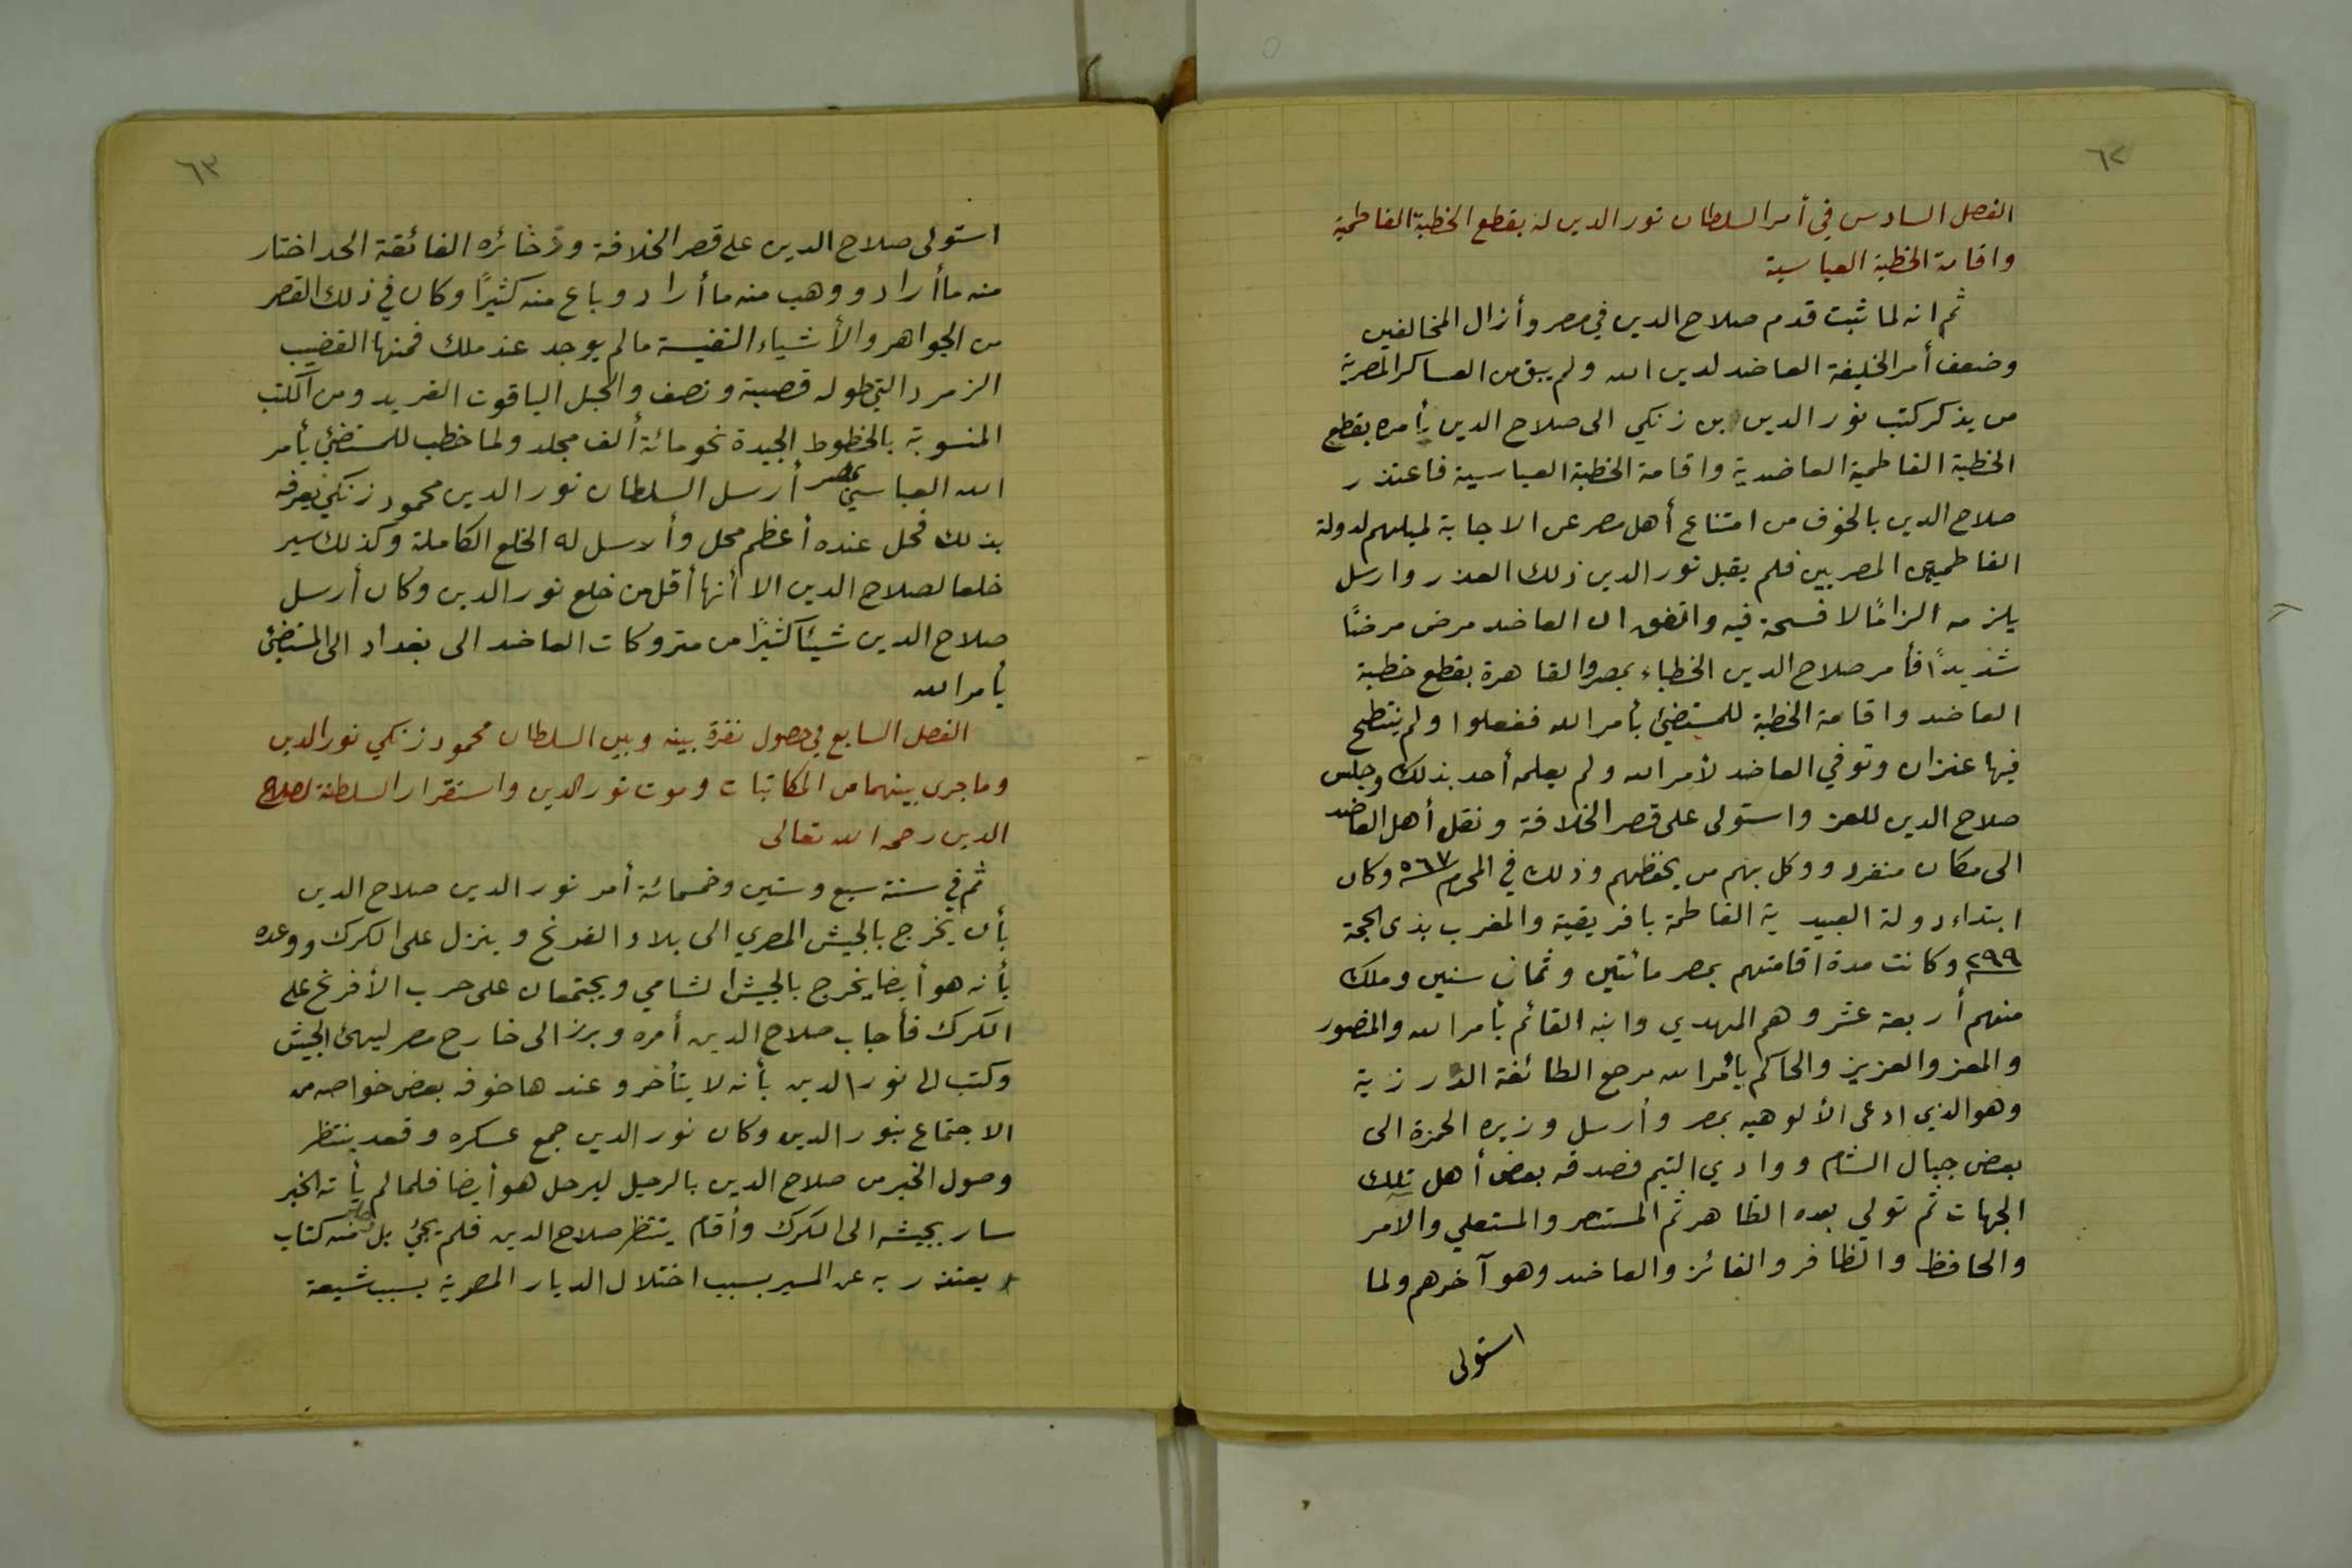 ٦٢
الفصل السادس في أمر السلطان نور الدين له بقطع الخطبة الفاطمية
واقامة الخطبة العباسية
ثم انه لما ثبت قدم صلاح الدين في مصر وأزال المخالفين
وضعف أمر الخليفة العاضد لدين الله ولم يبق من العساكر المصرية
من يذكر كتب نور الدين بن زنكي الى صلاح الدين يأمره بقطع
الخطبة الفاطمية العاضدية واقامة الخطبة العباسية فاعتذر
صلاح الدين بالخوف من امتناع أهل مصر عن الاجابة لميلهم لدولة
الفاطميين المصريين فلم يقبل نور الدين ذلك العذر وارسل
يلزمه الزامًا لا فسحة فيه واتفق ان العاضد مرض مرضًا
شديدًا فأمر صلاح الدين الخطباء بمصر والقاهرة بقطع خطبة
العاضد واقامة الخطبة للمستضئ بأمر الله ففعلوا ولم ينتطح
فيها عنزان وتوفي العاضد لأمر الله ولم يعلمه أحد بذلك وجلس
صلاح الدين للعز واستولى على قصر الخلافة ونقل أهل العاضد
الى مكان منفرد ووكل بهم من يحفظهم وذلك في المحرم ٥٦٧ وكان
ابتداء دولة العبيدية الفاطمة بافريقية والمغرب بذى الحجة
٢٩٩ وكانت مدة اقامتهم بمصر مائتين وثمان سنين وملك
منهم أربعة عشر وهم المهدي وابنه القائم بأمر الله والمنصور
والمعز والعزيز والحاكم بأمر الله مرجع الطائفة الدرزية
وهو الذي ادعى الألوهيه بمصر وأرسل وزيره الحمزة الى
بعض جبال الشام ووادي التيم فصدقه بعض أهل تلك
الجهات ثم تولي بعده الظاهر ثم المستنصر والمستعلي والآمر
والحافظ والظافر والفائز والعاضد وهو آخرهم ولما
استولى
٦٣
استولى صلاح الدين على قصر الخلافة وذخائره الفائقة الحد اختار
منه ما أراد ووهب منه ما أراد وباع منه كثيرًا وكان في ذلك القصر
من الجواهر والأشياء النفيسة ما لم يوجد عند ملك فمنها القضيب
الزمرد التي طوله قصبية ونصف والجبل الياقوت الفريد ومن الكتب
المنسوبة بالخطوط الجيدة نحو مائة ألف مجلد ولما خطب للمستضئ بأمر
الله العباسي بمصر أرسل السلطان نور الدين محمود زنكي يعرفه
بذلك فحل عنده أعظم محل وأرسل له الخلع الكاملة وكذلك سير
خلعا لصلاح الدين الا أنها أقل من خلع نور الدين وكان أرسل
صلاح الدين شيئا كثيرًا من متروكات العاضد الى بغداد الى المستضئ
بأمر الله
الفصل السابع في حصول نفرة بينه وبين السلطان محمود زنكي نور الدين
وما جرى بينهما من المكاتبات وموت نور الدين واستقرار السلطنة لصلاح
الدين رحمه الله تعالى
ثم في سنة سبع وستين وخمسمائة أمر نور الدين صلاح الدين
بأن يخرج بالجيش المصري الى بلاد الفرنج وينزل على الكرك ووعده
بأنه هو أيضا يخرج بالجيش الشامي ويجتمعان على حرب الأفرنج على
الكرك فأجاب صلاح الدين أمره وبرز الى خارج مصر ليهئ الجيش
وكتب الى نور الدين بأنه لا يتأخر وعندها خوفه بعض خواصه من
الاجتماع بنور الدين وكان نور الدين جمع عسكره وقعد ينتظر
وصول الخبر من صلاح الدين بالرحيل ليرحل هو أيضا فلما لم يأته الخبر
سار بجيشه الى الكرك وأقام ينتظر صلاح الدين فلم يجئ بل جاء منه كتاب
يعتذر به عن المسير بسبب اختلال الديار المصرية بسبب شيعة